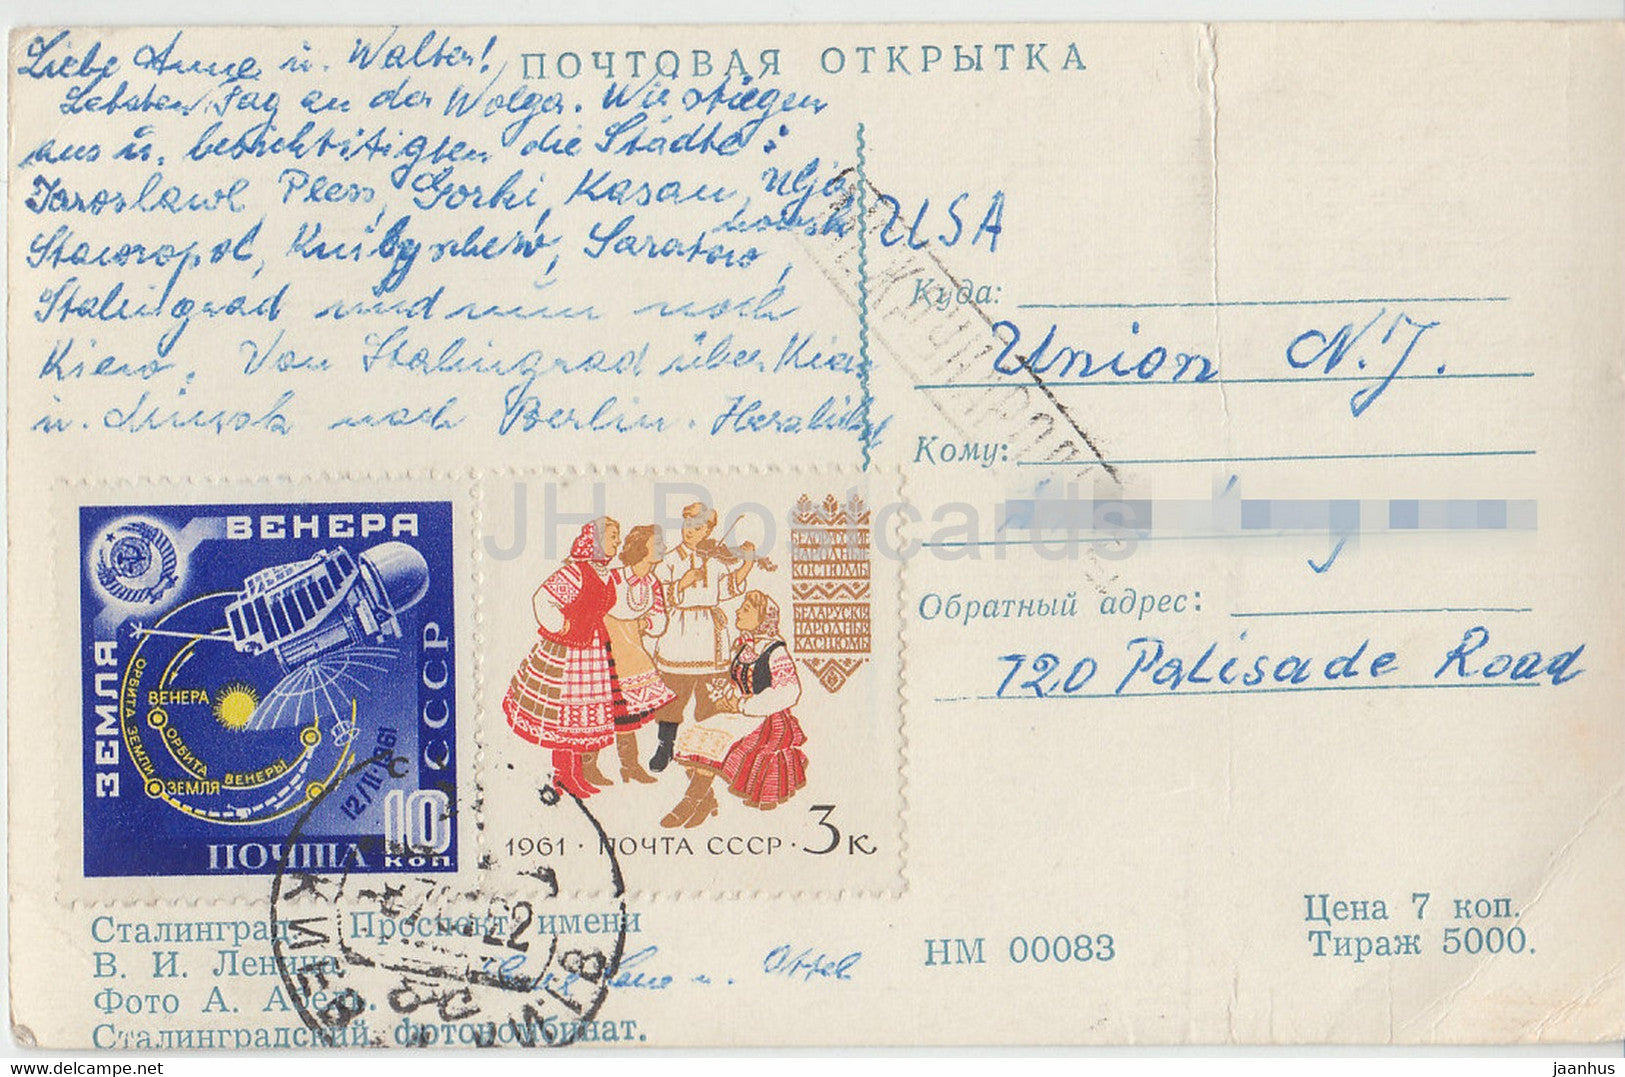 Liebe Anne u. Walter!
ПОЧТОВАЯ ОТКРЫТКА
Letzten Tag an der Wolga. Wir stiegen
aus u. besichtigten die Städte:
Jaroslawl, Pless, Gorki, Kasan, Ulja
nowsk
Stawropol, Kuibyschew, Saratow,
Stalingrad und nun noch
Kiew. Von Stalingrad über Kiew
u. Minsk nach Berlin. Herzlichst
USA
Куда:
Union N.J.
МЕЖДУНАРОДНОЕ
Кому:
Обратный адрес:
720 Palisade Road
ВЕНЕРА
ЗЕМЛЯ
СССР
ОРБИТА ЗЕМЛИ
ВЕНЕРА
ОРБИТА ВЕНЕРЫ
ЗЕМЛЯ
12/II-1961
10
КОП.
ПОЧТА
БЕЛОРУССКИЕ
НАРОДНЫЕ
КОСТЮМЫ
БЕЛАРУСКІЯ
НАРОДНЫЕ
КАСЦЮМЫ
1961 · ПОЧТА СССР · 3 К
КИЕВ
КИЇВ
Сталинград. Проспект имени
В. И. Ленина
Фото А. Абель.
Сталинградский фотокомбинат.
u.
НМ 00083
Цена 7 коп.
Тираж 5000.
JH Postcards
www.delcampe.net
jaanhus